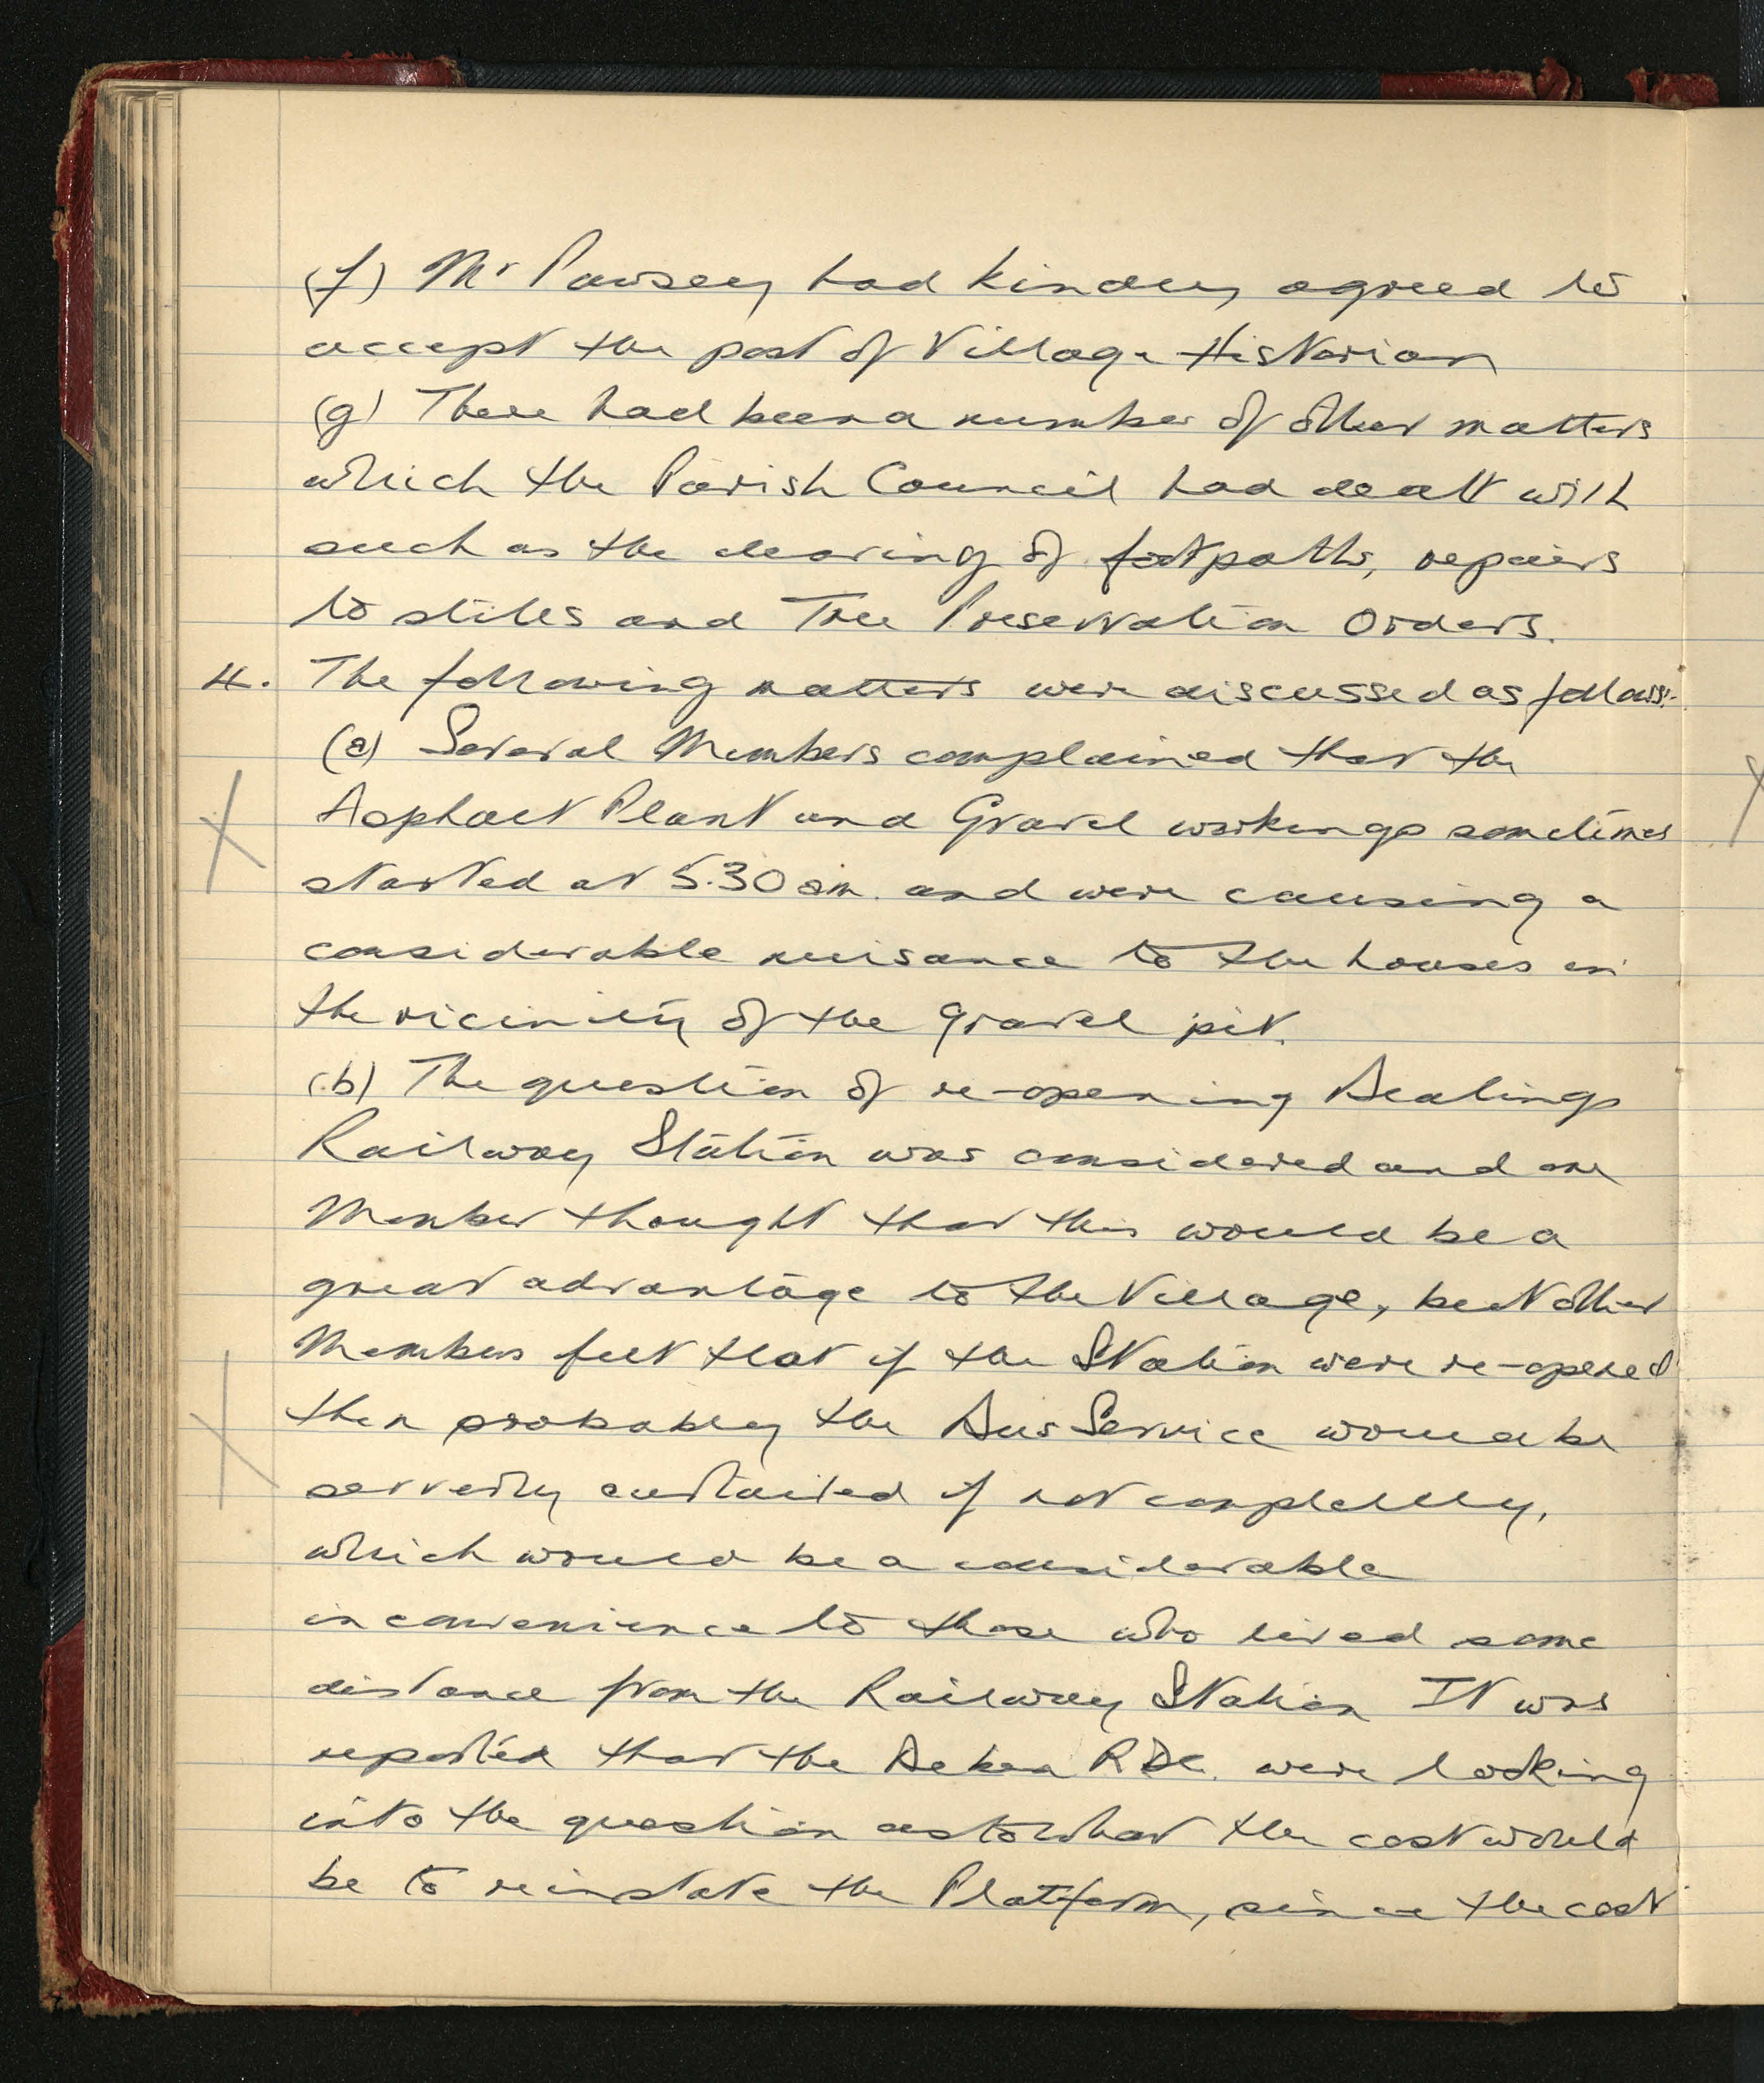 (f) Mr Pawsey had kindly agreed to
accept the post of Village Historian
(g) There had been a number of other matters
which the Parish Council had dealt with
such as the clearing of footpaths, repairs
to stiles and Tree Preservation Orders.
4. The following matters were discussed as follows:-
(a) Several Members complained that the
Asphalt Plant and Gravel workings sometimes
started at 5.30 am. and were causing a
considerable nuisance to the houses in
the vicinity of the Gravel pit.
(b) The question of re-opening Bealings
Railway Station was considered and one
Member thought that this would be a
great advantage to the Village, but other
Members felt that if the Station were re-opened
then probably the Bus Service would be
serverly curtailed if not completely,
which would be a considerable
inconvenience to those who lived some
distance from the Railway Station It was
reported that the Deben RDC. were looking
into the question as to what the cost would
be to reinstate the Platform, since the cost